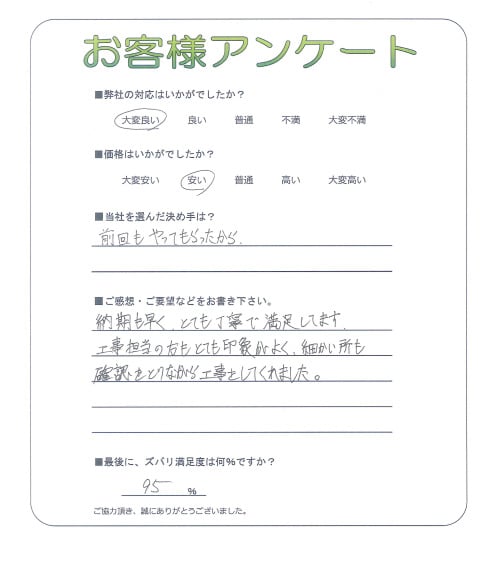 お客様アンケート
■弊社の対応はいかがでしたか？
大変良い 良い 普通 不満 大変不満
■価格はいかがでしたか？
大変安い 安い 普通 高い 大変高い
■当社を選んだ決め手は？
前回もやってもらったから、
■ご感想・ご要望などをお書き下さい。
納期も早く、とても丁寧で満足してます、
工事担当の方もとても印象がよく、細かい所も
確認をとりながら工事をしてくれました。
■最後に、ズバリ満足度は何%ですか？
95 %
ご協力頂き、誠にありがとうございました。